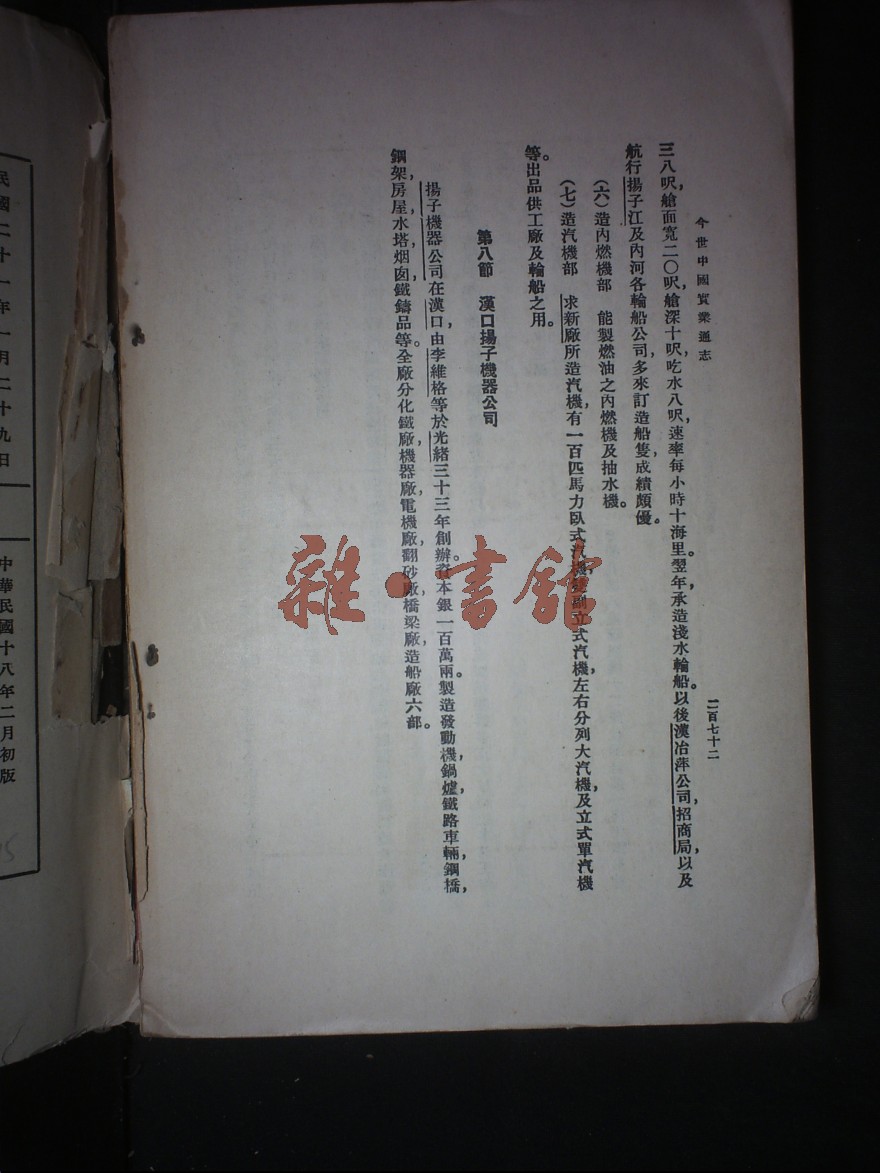 今世中國實業通志
二百七十二
三八呎,艙面寬二〇呎,艙深十呎,吃水八呎,速率每小時十海里。翌年,承造淺水輪船。以後漢冶萍公司,招商局,以及
航行揚子江及內河各輪船公司,多來訂造船隻,成績頗優。
(六)造內燃機部 能製燃油之內燃機及抽水機。
(七)造汽機部 求新廠所造汽機,有一百匹馬力臥式汽機,雙副立式汽機,左右分列大汽機,及立式單汽機
等。出品供工廠及輪船之用。
第八節 漢口揚子機器公司
揚子機器公司在漢口,由李維格等於光緒三十三年創辦。資本銀一百萬兩。製造發動機,鍋爐,鐵路車輛,鋼橋,
鋼架,房屋,水塔,烟囱,鐵鑄品等。全廠分化鐵廠,機器廠,電機廠,翻砂廠,橋梁廠,造船廠六部。
雜·書館
民國二十一年一月二十九日
中華民國十八年二月初版